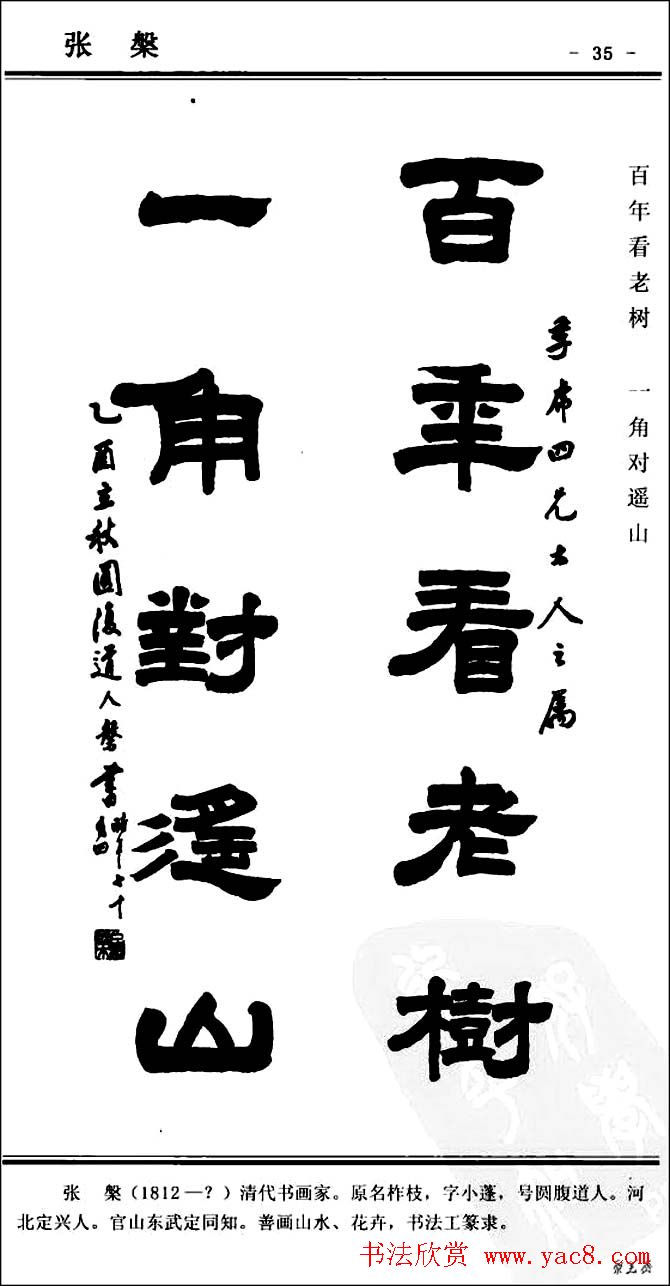 张 槃
- 35 -
百年看老树 一角对遥山
季席四兄大人之属
百年看老樹
一角對遥山
乙酉立秋圆腹道人槃書
時年七十
有四
张 槃(1812—?)清代书画家。原名柞枝,字小蓬,号圆腹道人。河
北定兴人。官山东武定同知。善画山水、花卉,书法工篆隶。
书法欣赏 www.yac8.com